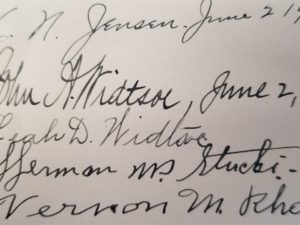 N. Jensen. June 2
John A. Widtsoe, June 2,
Leah D. Widtsoe
Herman M. Stucki.
Vernon M.